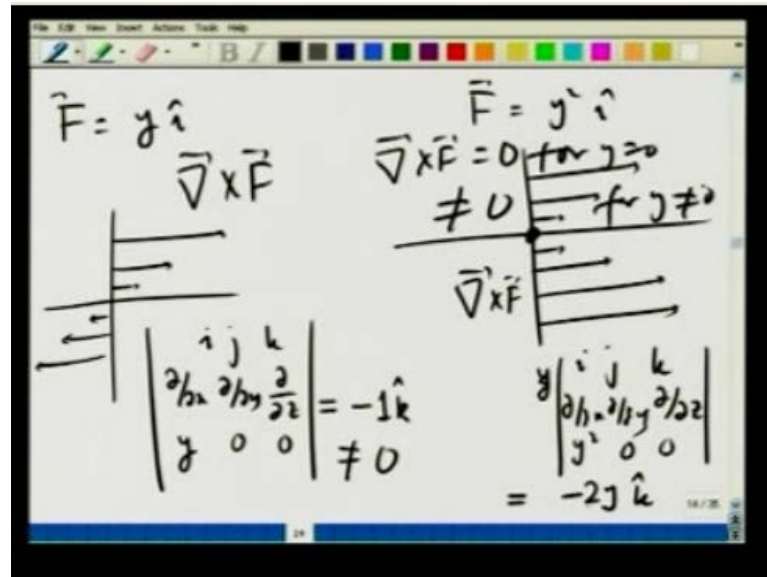 File Edit View Insert Actions Tools Help
B I
F⃗ = y î
∇⃗ x F⃗
i j k
∂/∂x ∂/∂y ∂/∂z
y 0 0
= -1k̂
≠ 0
F⃗ = y² î
∇⃗ x F⃗ = 0 for y=0
≠ 0 for y≠0
∇⃗ x F⃗
y
i j k
∂/∂x ∂/∂y ∂/∂z
y² 0 0
= -2y k̂